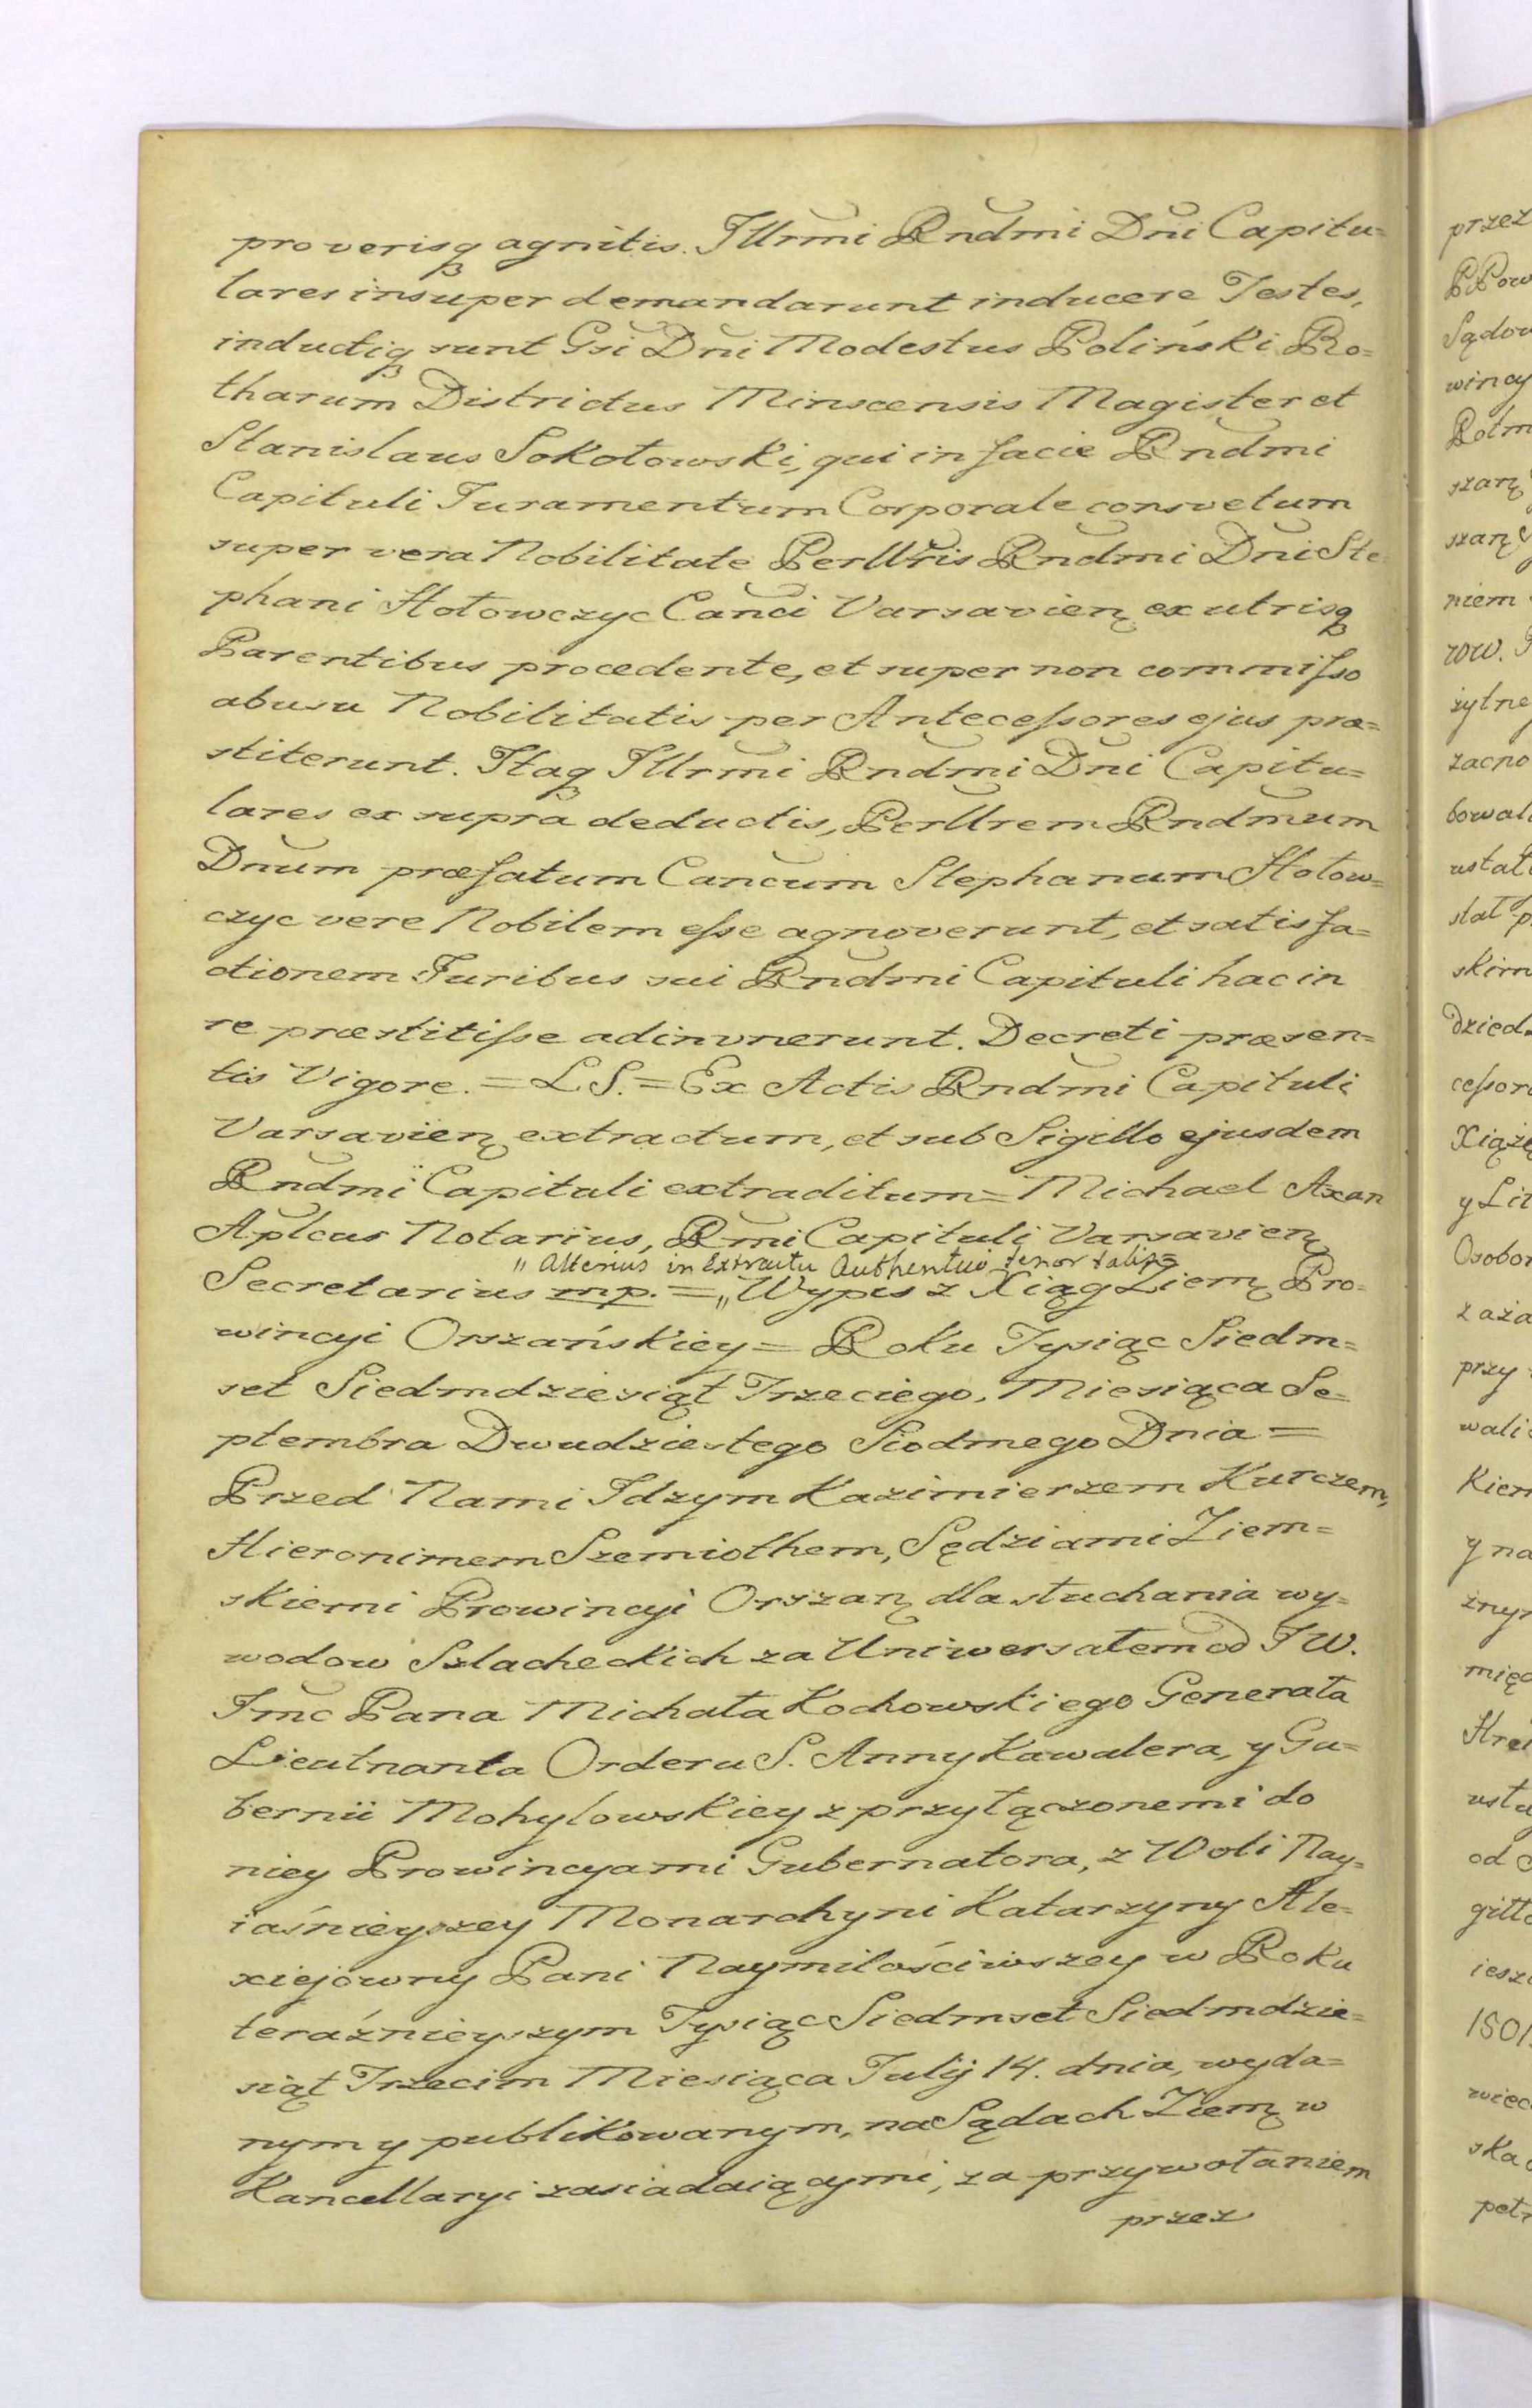 pro verisq agnitis. Illrmi Rndmi Dni Capitu=
lares insuper demandarunt inducere Testes,
inductiq sunt Gsi Dni Modestus Poliński Ro=
tharum Districtus Minscensis Magister et
Stanislaus Sokołowski, qui in facie Rndmi
Capituli Juramentum Corporale consvetum
super vera Nobilitate Perillris Rndmi Dni Ste
phani Hołowczyc Canci Varsavien ex utrisq
Parentibus procedente, et super non commisso
abusu Nobilitatis per Antecessores ejus præ=
stiterunt. Itaq Illrmi Rndmi Dni Capitu=
lares ex supra deductis, Perillrem Rndmum
Dnum præfatum Cancum Stephanum Hołow=
czyc vere Nobilem esse agnoverunt, et satisfa=
ctionem Juribus sui Rndmi Capituli hac in
re præstitisse adinvnerunt. Decreti præsen=
tis Vigore. = L.S. = Ex Actis Rndmi Capituli
Varsavien extractum, et sub Sigillo ejusdem
Rndmi Capituli extraditum = Michael Axan
Aplcus Notarius, Rmi Capituli Varsavien
„ Alterius in Extractu Authentico tenor talis =
Secretarius mp. = „ Wypis z Xiąg Ziem Pro=
wincyi Orszańskiey = Roku Tysiąc Siedm=
set Siedmdziesiąt Trzeciego, Miesiąca Se=
ptembra Dwudziestego Siodmego Dnia =
Przed Nami Idzym Kazimierzem Kurczem,
Hieronimem Szemiothem, Sędziami Ziem=
skiemi Prowincyi Orszan dla słuchania wy=
wodow Szlacheckich za Uniwersałem od JW.
Jmc Pana Michała Kochowskiego Generała
Lieutnanta Orderu S. Anny Kawalera, y Gu=
bernii Mohylowskiey z przyłączonemi do
niey Prowincyami Gubernatora, z Woli Nay=
iaśnieyszey Monarchyni Katarzyny Ale=
xiejowny Pani Naymiłościwszey w Roku
teraźnieyszym Tysiąc Siedmset Siedmdzie=
siąt Trzecim Miesiąca Julij 14. dnia, wyda=
nym y publikowanym, na Sądach Ziem w
Kancellaryi zasiadaiącymi, za przywołaniem
przez